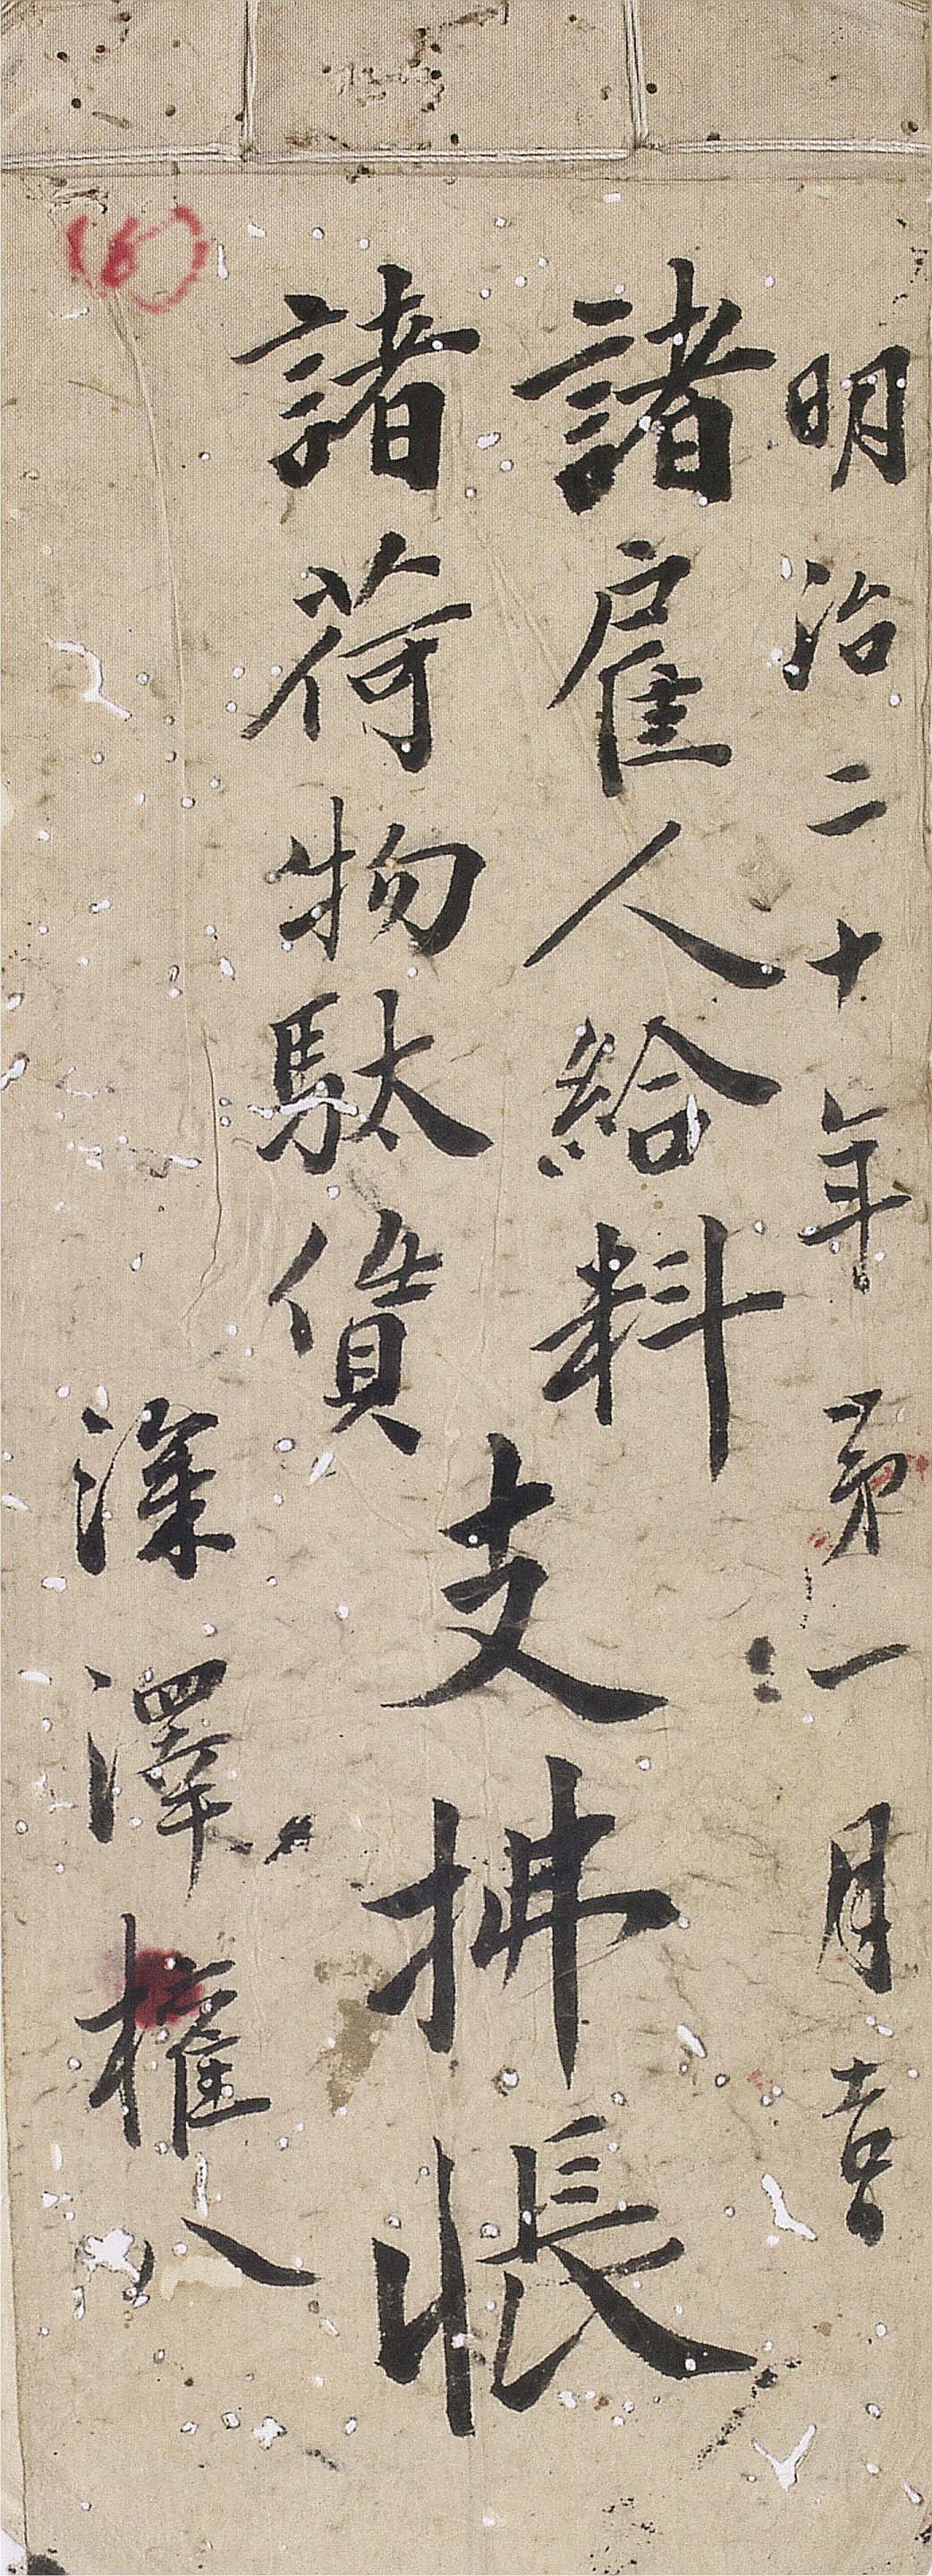 明治二十年第一月吉
諸雇人給料
諸荷物駄賃
支拂帳
深澤權八